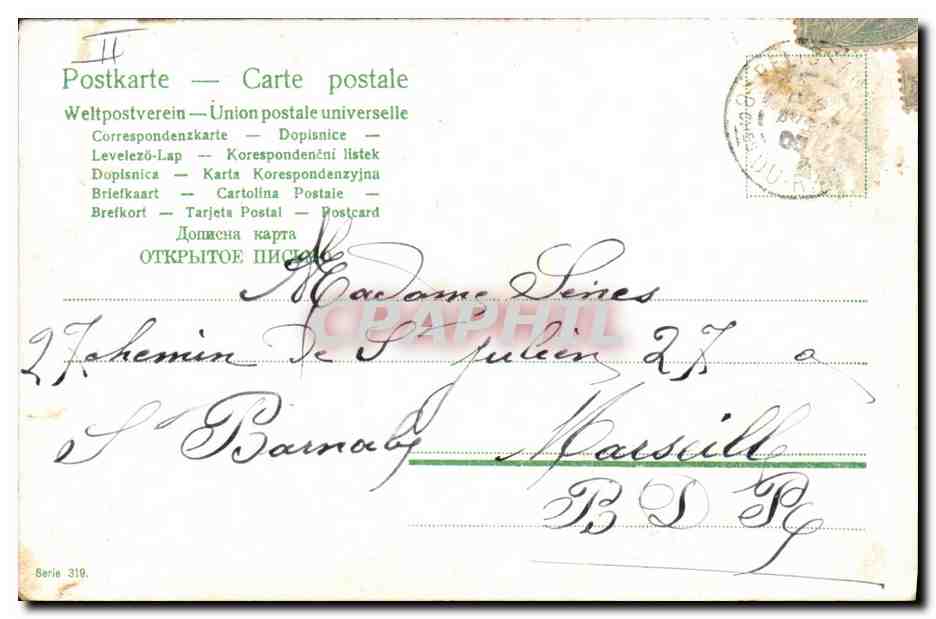 II
Postkarte — Carte postale
Weltpostverein — Union postale universelle
Correspondenzkarte — Dopisnice —
Levelező-Lap — Korespondenční listek
Dopisnica — Karta Korespondenzyjna
Briefkaart — Cartolina Postale —
Brefkort — Tarjeta Postal — Postcard
Дописна карта
ОТКРЫТОЕ ПИСЬМО
Madame Senes
CPAPHIL
27 chemin de St Julien 27 a
St Barnaby Marseill
B D R
Serie 319.